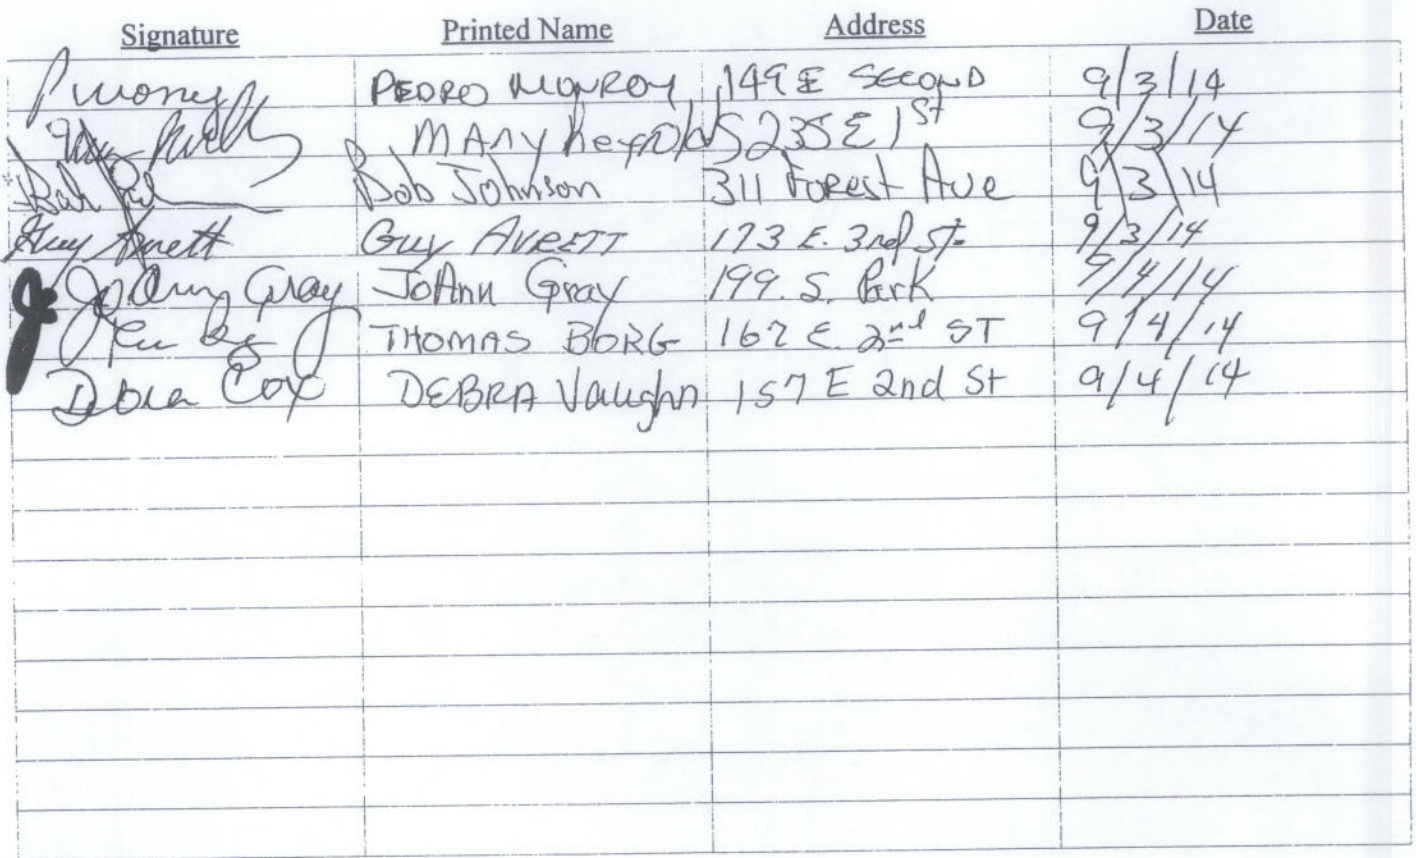 Signature Printed Name Address Date
PEDRO MONROY 149 E SECOND 9/3/14
MARY Reynolds 235 E 1st 9/3/14
Bob Johnson 311 Forest Ave 9/3/14
Guy Avrett Guy AVRETT 173 E. 3rd St. 9/3/14
JoAnn Gray JoAnn Gray 199. S. Park 9/4/14
THOMAS BORG 167 E. 2nd ST 9/4/14
Debra Cox DEBRA Vaughn 157 E 2nd St 9/4/14